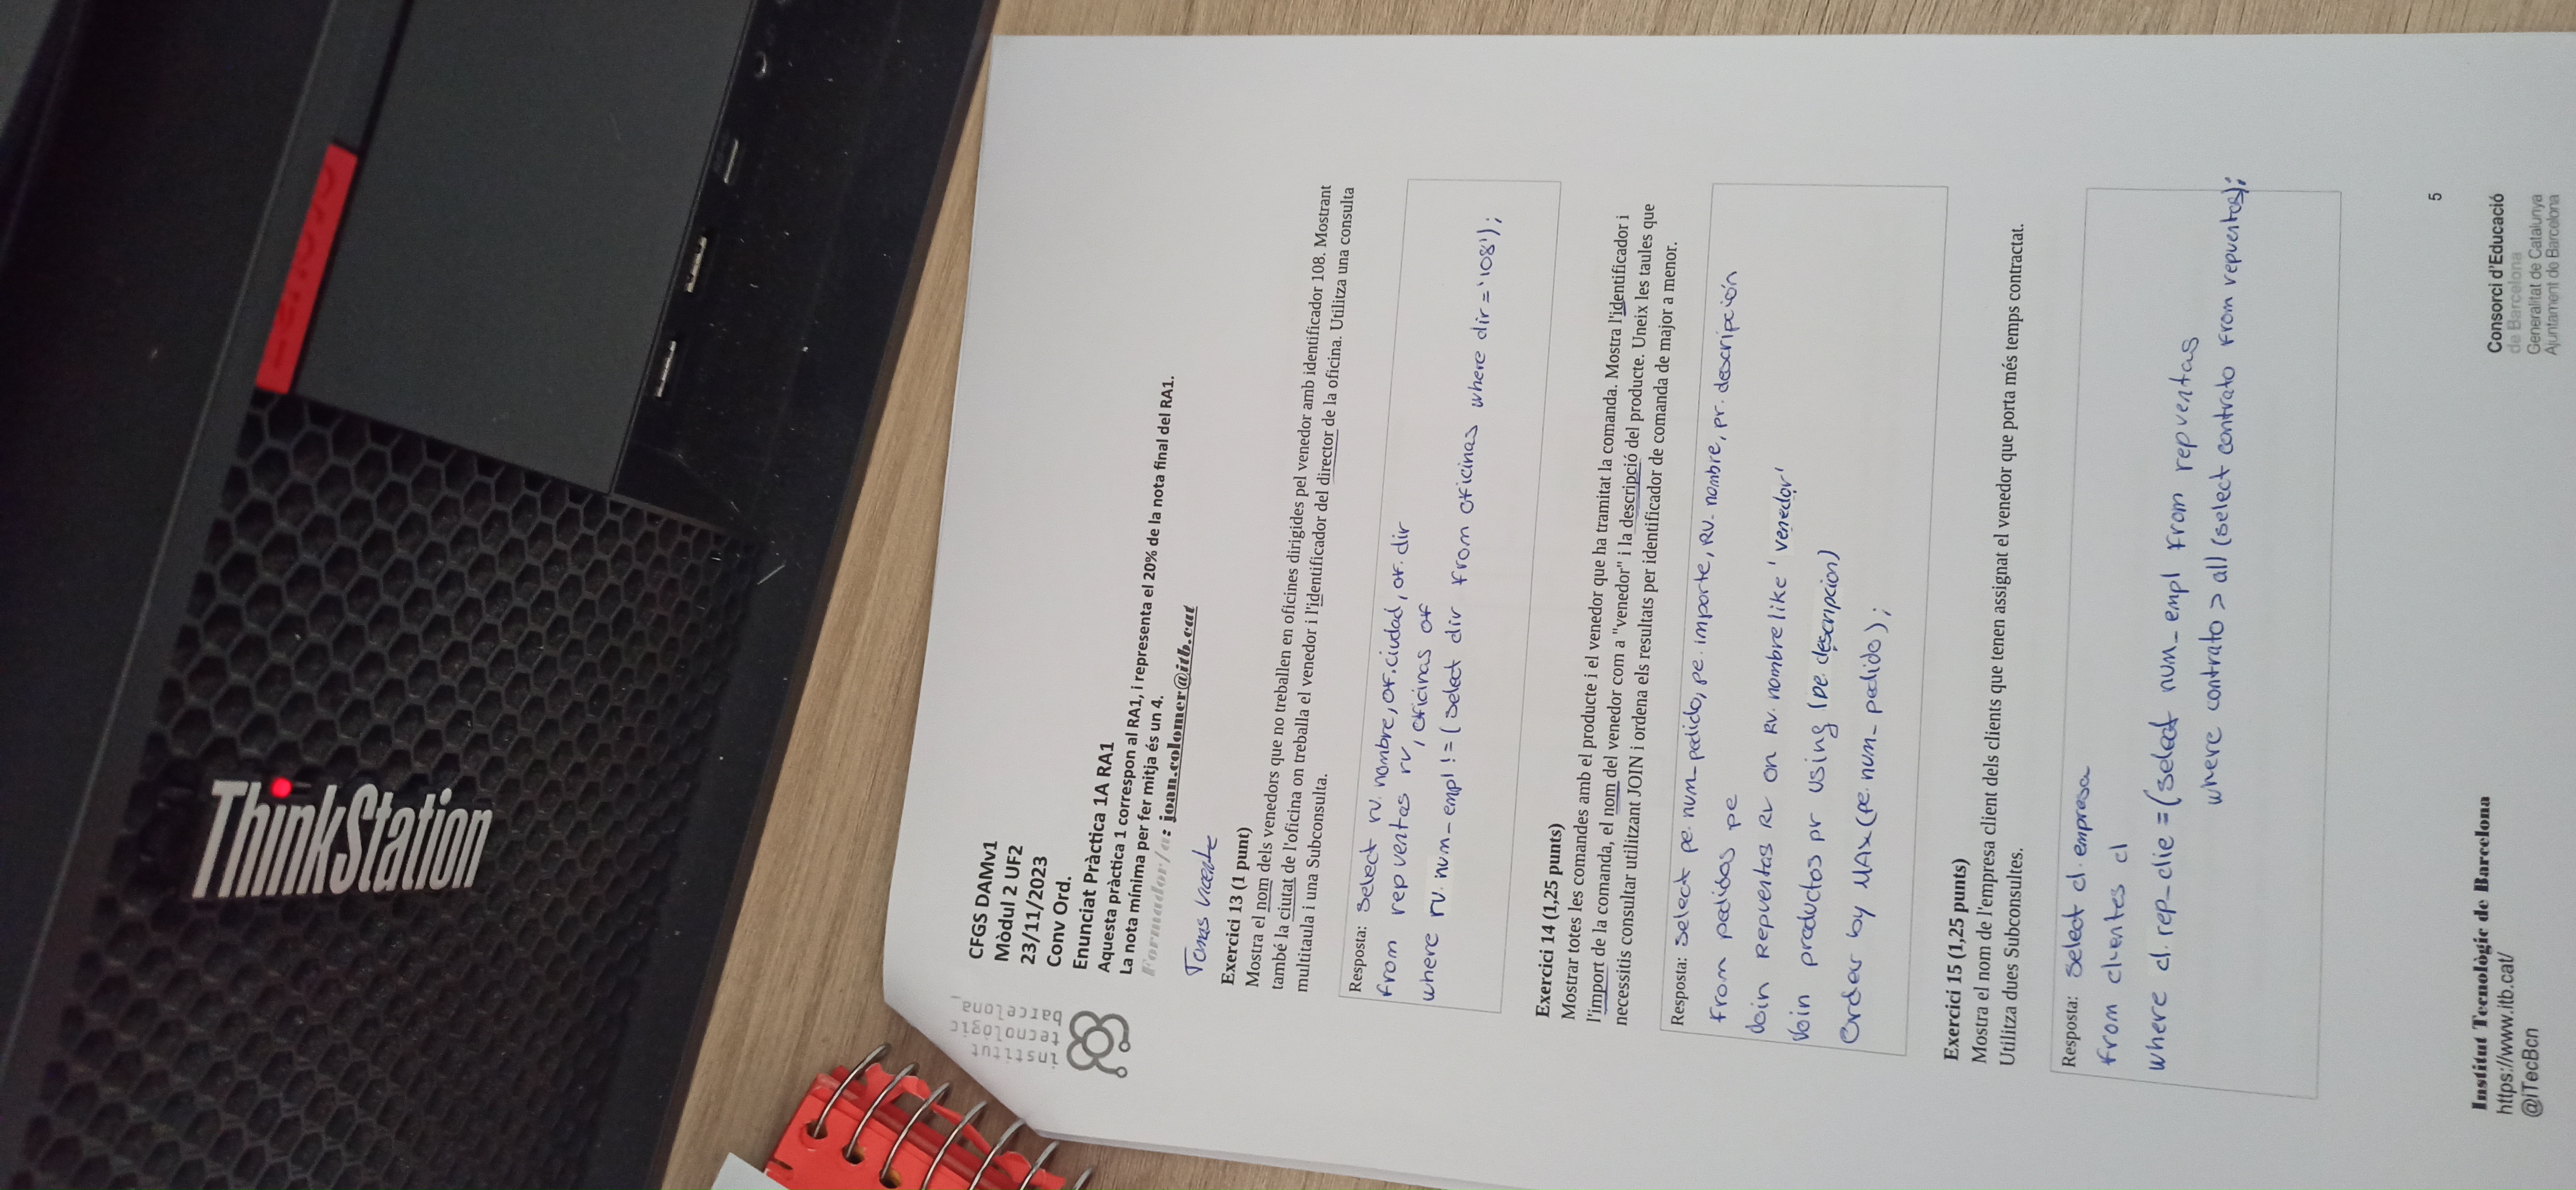 ThinkStation
lenovo
institut
tecnològic
barcelona_
CFGS DAMv1
Mòdul 2 UF2
23/11/2023
Conv Ord.
Enunciat Pràctica 1A RA1
Aquesta pràctica 1 correspon al RA1, i representa el 20% de la nota final del RA1.
La nota mínima per fer mitja és un 4.
Formador/a: joan.colomer@itb.cat
Tomas Vicente
Exercici 13 (1 punt)
Mostra el nom dels venedors que no treballen en oficines dirigides pel venedor amb identificador 108. Mostrant
també la ciutat de l'oficina on treballa el venedor i l'identificador del director de la oficina. Utilitza una consulta
multitaula i una Subconsulta.
Resposta: Select rv. nombre, of.ciudad, of. dir
from repventas rv, oficinas of
where rv. num_empl != (select dir from oficinas where dir = '108');
Exercici 14 (1,25 punts)
Mostrar totes les comandes amb el producte i el venedor que ha tramitat la comanda. Mostra l'identificador i
l'import de la comanda, el nom del venedor com a "venedor" i la descripció del producte. Uneix les taules que
necessitis consultar utilitzant JOIN i ordena els resultats per identificador de comanda de major a menor.
Resposta: Select pe. num_pedido, pe. importe, RV. nombre, pr. descripción
from pedidos pe
Join Repventas RV on RV. nombre like 'venedor'
Join productos pr using (pe. descripcion)
Order by MAX (pe. num_pedido);
Exercici 15 (1,25 punts)
Mostra el nom de l'empresa client dels clients que tenen assignat el venedor que porta més temps contractat.
Utilitza dues Subconsultes.
Resposta: Select cl. empresa
from clientes cl
where cl. rep_clie = (select num_empl from repventas
where contrato > all (select contrato from repventas);
5
Institut Tecnològic de Barcelona
https://www.itb.cat/
@iTecBcn
Consorci d'Educació
de Barcelona
Generalitat de Catalunya
Ajuntament de Barcelona